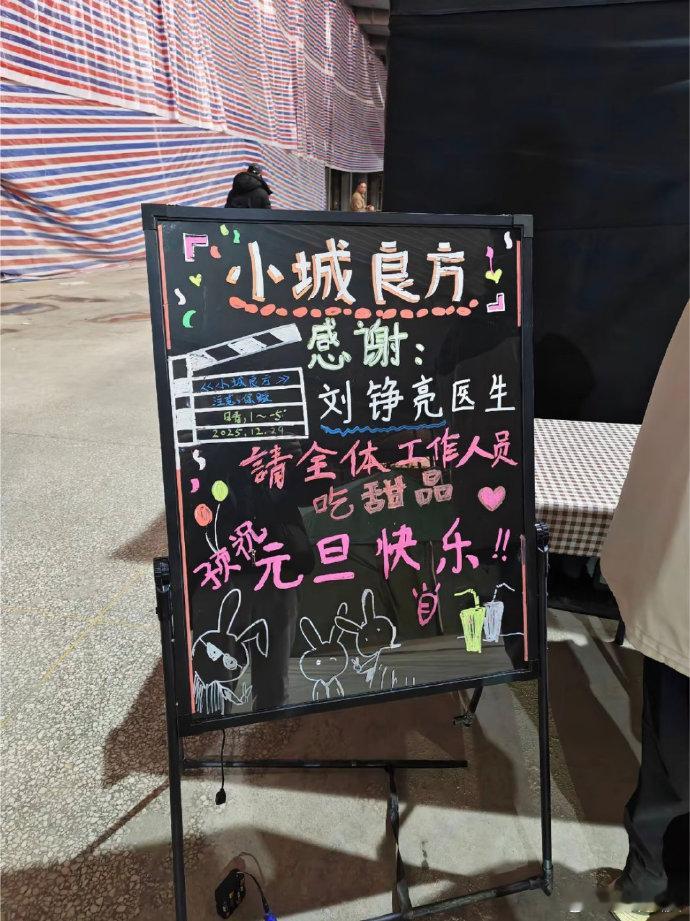 小城良方
感谢:
《小城良方》
注意:保暖
日晴:1~-5°
2025.12.29
刘铮亮医生
請全体工作人员
吃甜品
预祝
元旦快乐!!